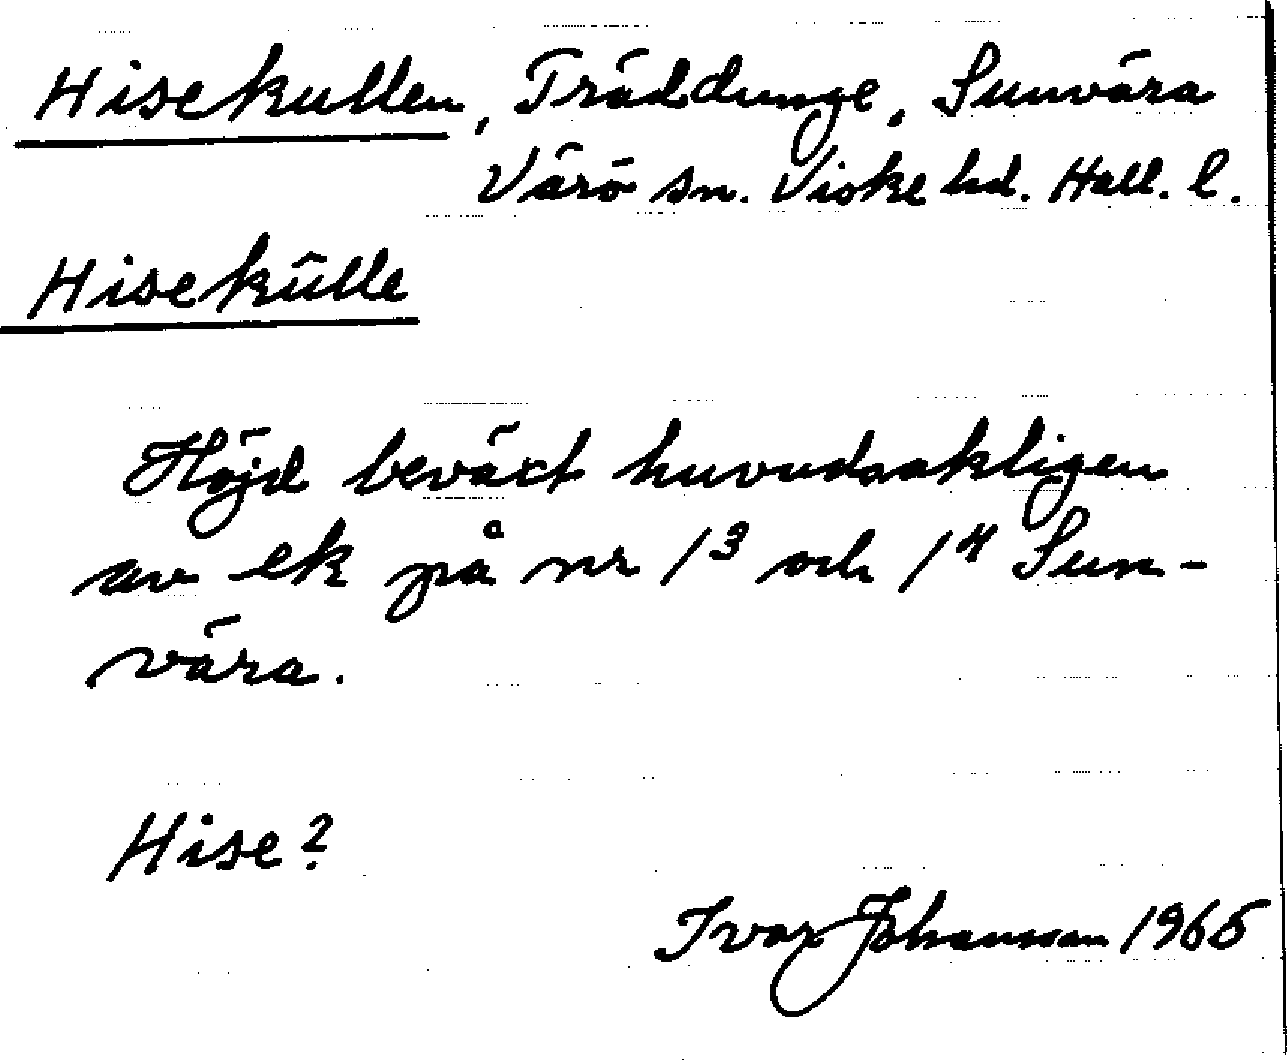 Hisekullen, Träddunge, Sunvära
Värö sn. Viske hd. Hall. l.
Hisekūlle
Höjd beväxt huvudsakligen
av ek på nr 13 och 14 Sun-
vära.
Hise?
Ivar Johansson 1965